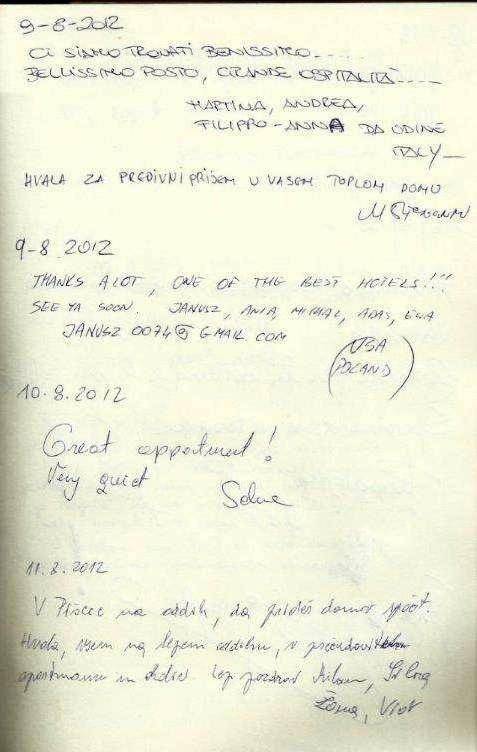 9-8-2012
CI SIAMO TROVATI BENISSIMO.....
BELLISSIMO POSTO, GRANDE OSPITALITÀ....
MARTINA, ANDREA,
FILIPPO-ANNA DA UDINE
ITALY_
HVALA ZA PREDIVNI PRIJEM U VAŠEM TOPLOM DOMU
9-8 2012
THANKS A LOT, ONE OF THE BEST HOTELS!!!
SEE YA SOON. JANUSZ, ANIA, MICHAL, ADAŚ, EWA
JANUSZ 0074@GMAIL.COM
USA
POLAND
10.8.2012
Great appartment!
Very quiet
11.8.2012
V Piscec na oddih, da prideš domov spočit.
Hvala, vsem na lepem oddihu, v
apartmanu in Lep pozdrav Milan, Silva
Žana, Vlat